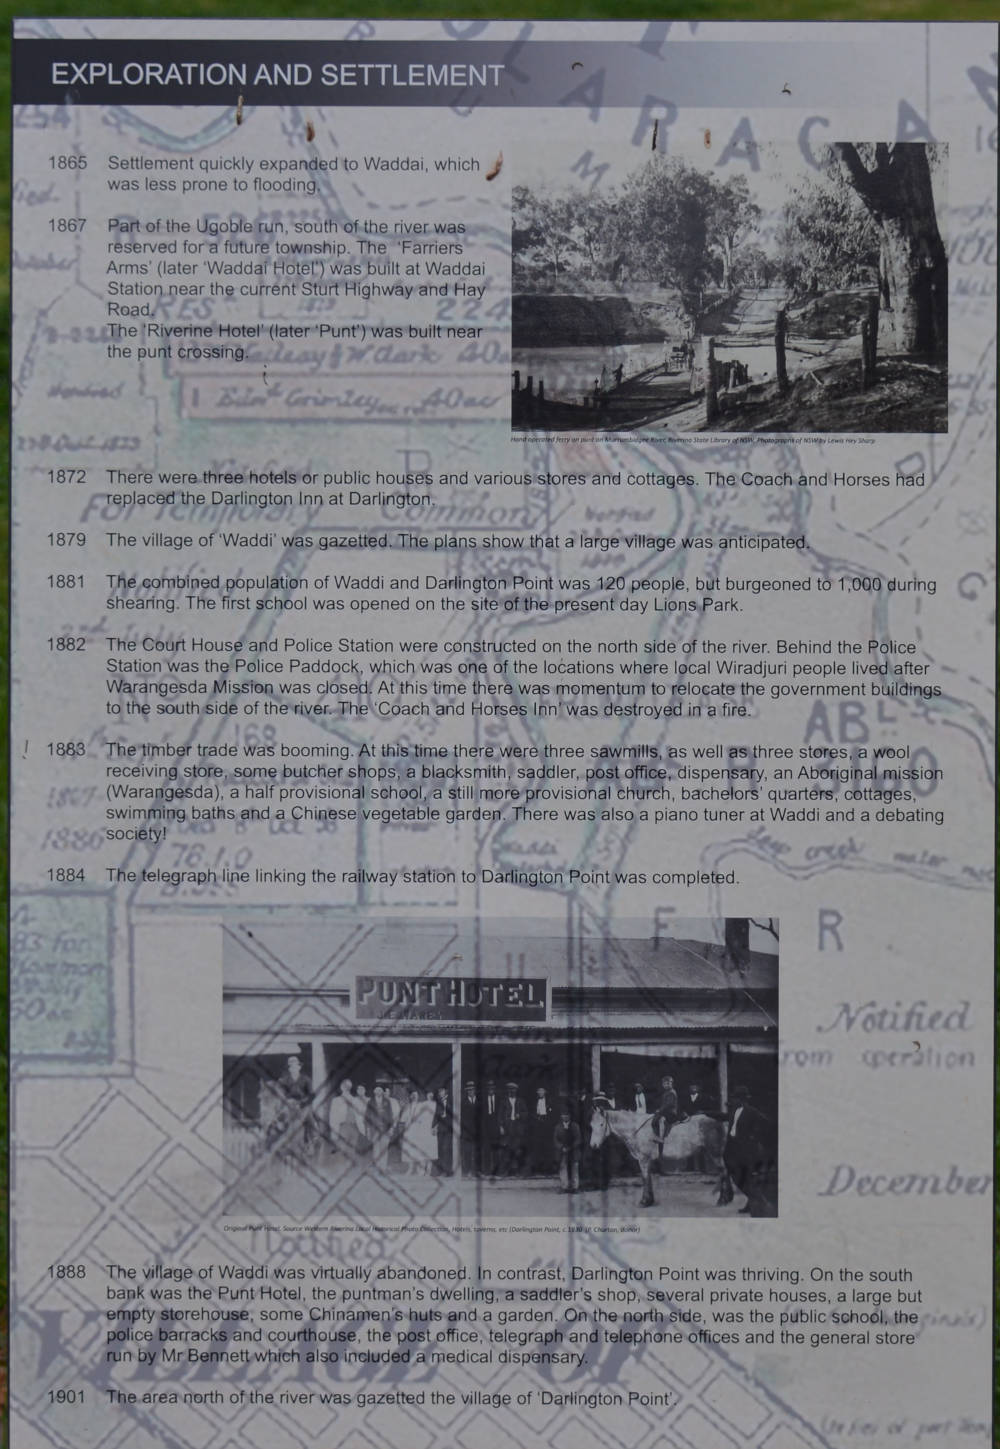 EXPLORATION AND SETTLEMENT
1865 Settlement quickly expanded to Waddai, which
was less prone to flooding.
1867 Part of the Ugoble run, south of the river was
reserved for a future township. The 'Farriers
Arms' (later 'Waddai Hotel') was built at Waddai
Station near the current Sturt Highway and Hay
Road.
The 'Riverine Hotel' (later 'Punt') was built near
the punt crossing.
Hand operated ferry on punt on Murrumbidgee River, Riverina State Library of NSW, Photographs of NSW by Lewis Hey Sharp
1872 There were three hotels or public houses and various stores and cottages. The Coach and Horses had
replaced the Darlington Inn at Darlington.
1879 The village of 'Waddi' was gazetted. The plans show that a large village was anticipated.
1881 The combined population of Waddi and Darlington Point was 120 people, but burgeoned to 1,000 during
shearing. The first school was opened on the site of the present day Lions Park.
1882 The Court House and Police Station were constructed on the north side of the river. Behind the Police
Station was the Police Paddock, which was one of the locations where local Wiradjuri people lived after
Warangesda Mission was closed. At this time there was momentum to relocate the government buildings
to the south side of the river. The 'Coach and Horses Inn' was destroyed in a fire.
1883 The timber trade was booming. At this time there were three sawmills, as well as three stores, a wool
receiving store, some butcher shops, a blacksmith, saddler, post office, dispensary, an Aboriginal mission
(Warangesda), a half provisional school, a still more provisional church, bachelors' quarters, cottages,
swimming baths and a Chinese vegetable garden. There was also a piano tuner at Waddi and a debating
society!
1884 The telegraph line linking the railway station to Darlington Point was completed.
PUNT HOTEL
Notified
from operation
December
Original Punt Hotel, Source Western Riverina Local Historical Photo Collection, Hotels, taverns, etc (Darlington Point, c.1930
1888 The village of Waddi was virtually abandoned. In contrast, Darlington Point was thriving. On the south
bank was the Punt Hotel, the puntman's dwelling, a saddler's shop, several private houses, a large but
empty storehouse, some Chinamen's huts and a garden. On the north side, was the public school, the
police barracks and courthouse, the post office, telegraph and telephone offices and the general store
run by Mr Bennett which also included a medical dispensary.
VILLAGE OF
1901 The area north of the river was gazetted the village of 'Darlington Point'.